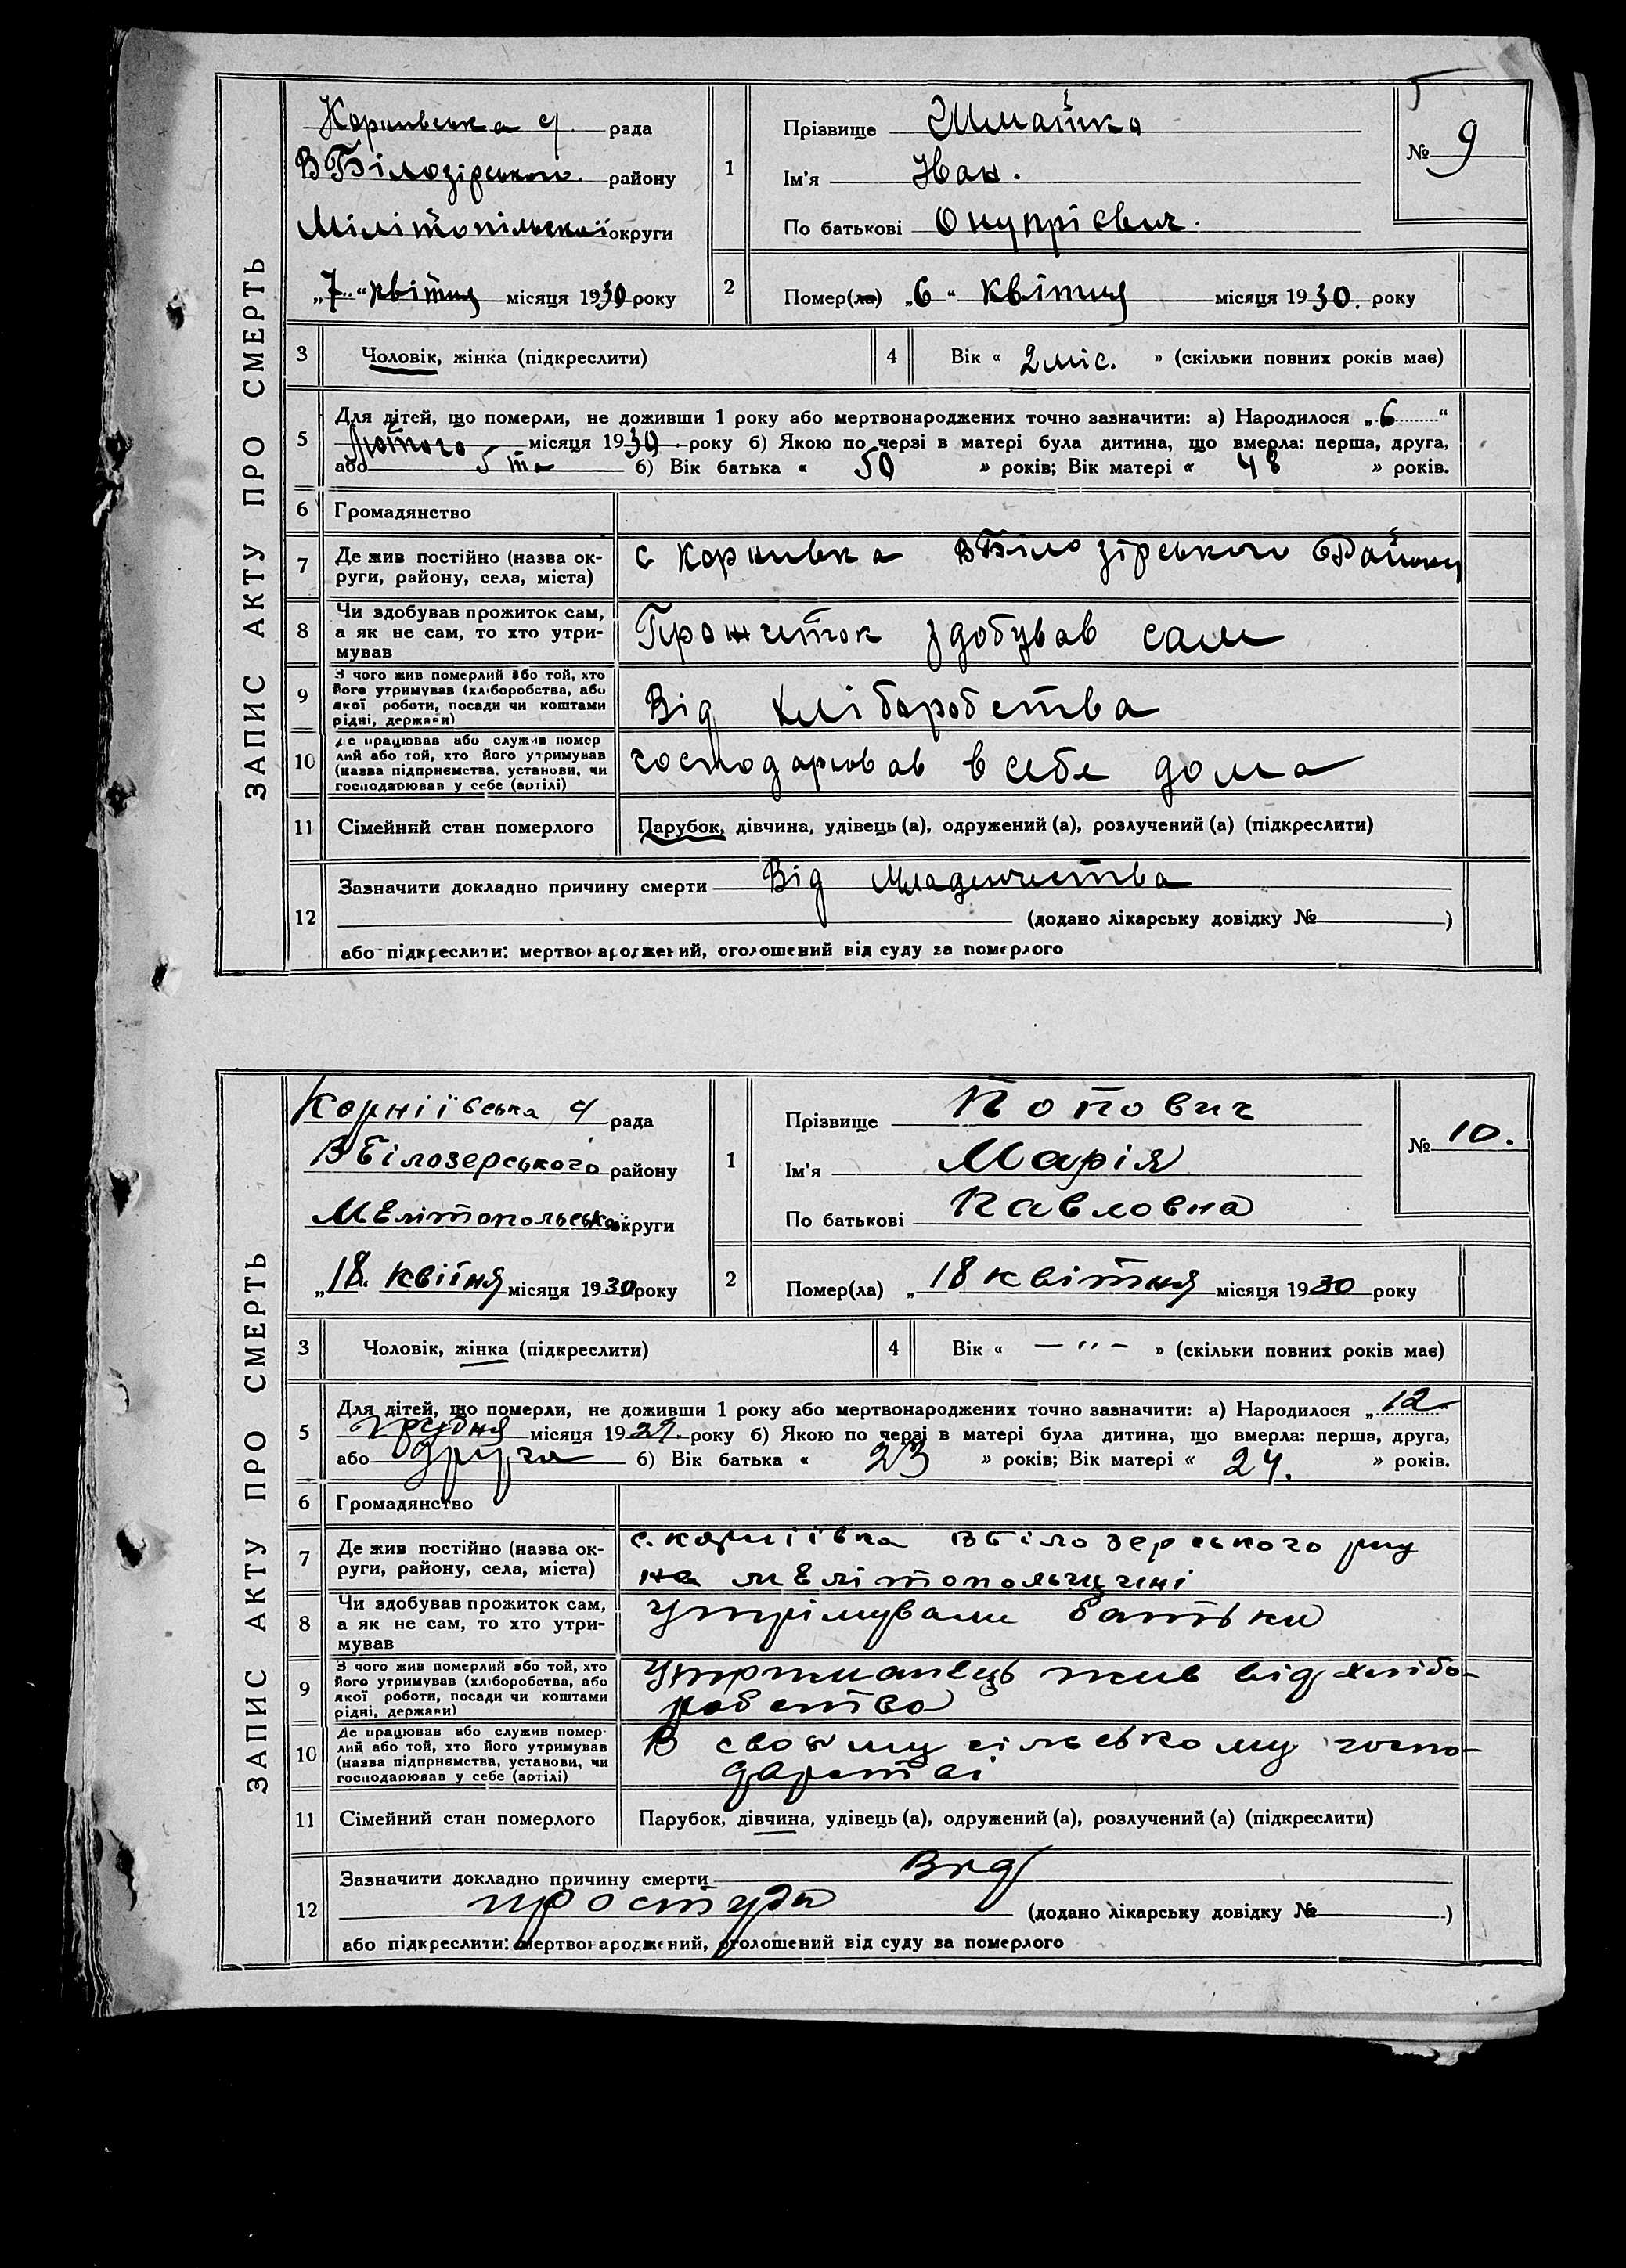 ЗАПИС АКТУ ПРО СМЕРТЬ
рада
В Білозірського району
Мілітопільскої округи
„7“ квітня місяця 1930 року
1
Прізвище Шмайко
Ім'я Іван.
По батькові Онупрієвич.
№ 9
2
Помер(ла) „6“ квітня місяця 1930. року
3
Чоловік, жінка (підкреслити)
4
Вік « 2 міс. » (скільки повних років має)
5
Для дітей, що померли, не доживши 1 року або мертвонароджених точно зазначити: а) Народилося „6“
Лютого місяця 1930 року б) Якою по черзі в матері була дитина, що вмерла: перша, друга,
або 5 та б) Вік батька « 50 » років; Вік матері « 48 » років.
6
Громадянство
7
Де жив постійно (назва ок-
руги, району, села, міста)
с Корнивка В Білозірського Району
8
Чи здобував прожиток сам,
а як не сам, то хто утри-
мував
Прожиток здобував сам
9
З чого жив померлий або той, хто
його утримував (хліборобства, або
якої роботи, посади чи коштами
рідні, держави)
Від хліборобства
10
Де працював або служив помер
лий або той, хто його утримував
(назва підприємства, установи, чи
господарював у себе (артілі)
господарював в себе дома
11
Сімейний стан померлого
Парубок, дівчина, удівець (а), одружений (а), розлучений (а) (підкреслити)
12
Зазначити докладно причину смерти Від Младенчества
(додано лікарську довідку № )
або підкреслити: мертвонароджений, оголошений від суду за померлого
ЗАПИС АКТУ ПРО СМЕРТЬ
Корніївська рада
В Білозерського району
Мелітопольської округи
„18“ квітня місяця 1930 року
1
Прізвище Попович
Ім'я Марія
По батькові Павловна
№ 10.
2
Помер(ла) „18 квітня місяця 1930 року
3
Чоловік, жінка (підкреслити)
4
Вік « — " — » (скільки повних років має)
5
Для дітей, що померли, не доживши 1 року або мертвонароджених точно зазначити: а) Народилося „12“
грудня місяця 1929. року б) Якою по черзі в матері була дитина, що вмерла: перша, друга,
або друга б) Вік батька « 23 » років; Вік матері « 24. » років.
6
Громадянство
7
Де жив постійно (назва ок-
руги, району, села, міста)
с. Корніївка В Білозерського р-ну
на мелітопольщчині
8
Чи здобував прожиток сам,
а як не сам, то хто утри-
мував
Утрімували батьки
9
З чого жив померлий або той, хто
його утримував (хліборобства, або
якої роботи, посади чи коштами
рідні, держави)
жив від хлібо-
робства
10
Де працював або служив помер-
лий або той, хто його утримував
(назва підприємства, установи, чи
господарював у себе (артілі)
В своєму сільському госпо-
дарстві
11
Сімейний стан померлого
Парубок, дівчина, удівець (а), одружений (а), розлучений (а) (підкреслити)
12
Зазначити докладно причину смерти Від
простуди
(додано лікарську довідку № )
або підкреслити: мертвонароджений, оголошений від суду за померлого